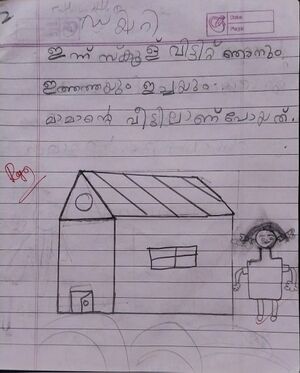 2
ഡയറി
Date:
Page:
ഇന്ന് സ്കൂള് വിട്ടിട്ട് ഞാനും
ഇത്തയും ഇച്ചയും
മാമാന്റെ വീട്ടിലാണ് പോയത്.